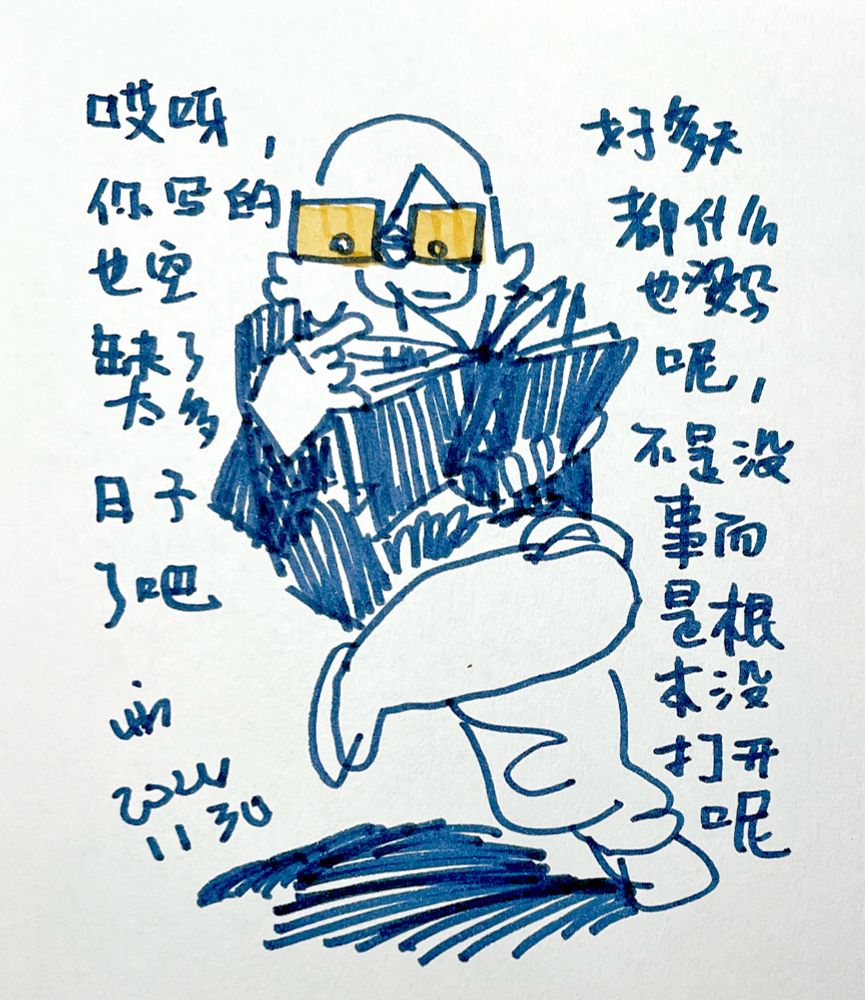 哎呀，
你写的
也空
缺了
太多
日子
了吧
2024
11 30
好多天
都什么
也没写
呢，
不是没
事而
是根
本没
打开
呢